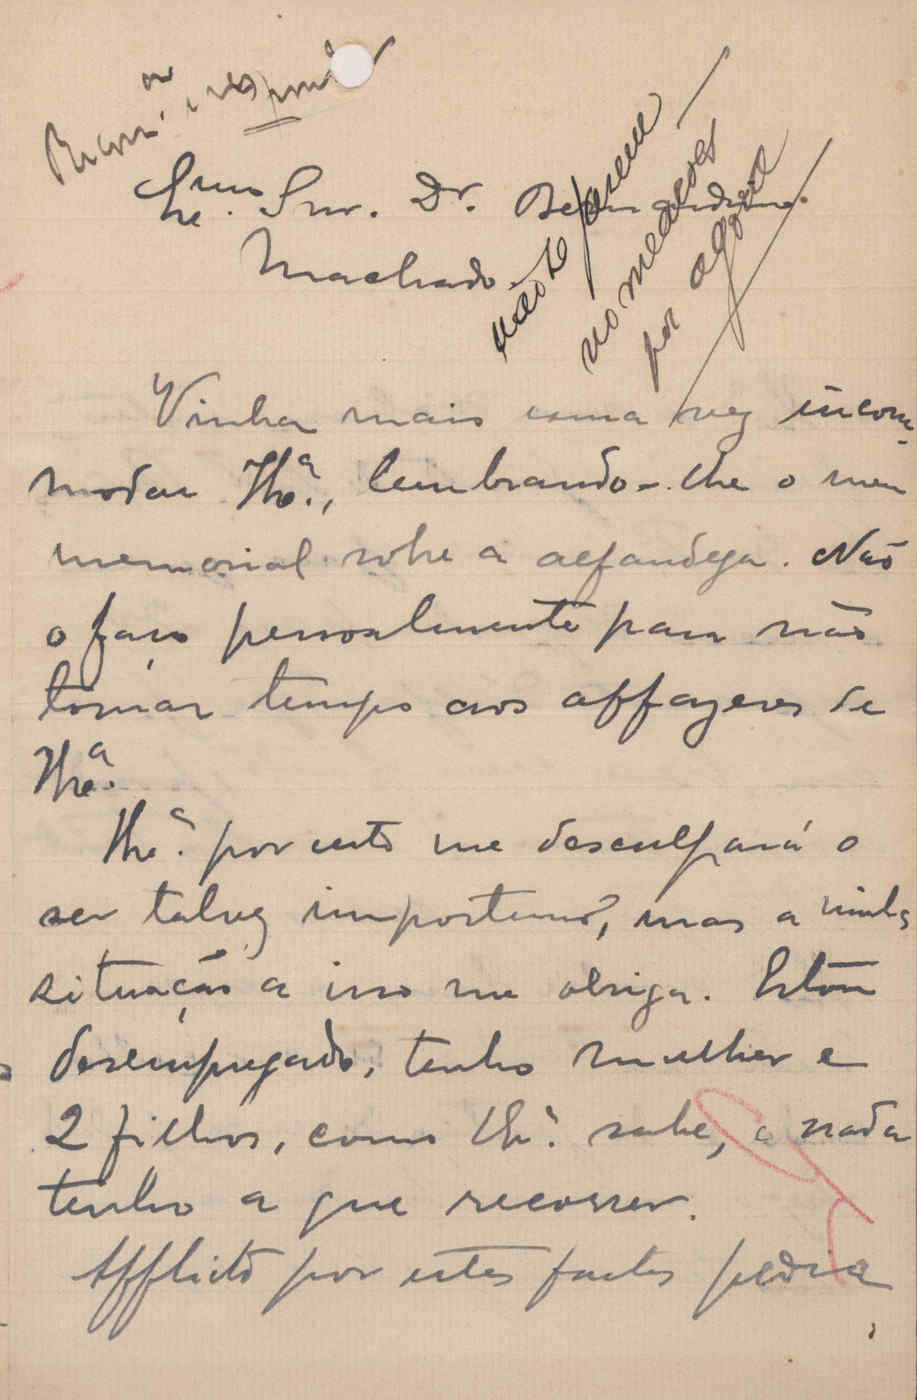 Exmo. Snr. Dr. Bernardino
Machado
não
no
por
Vinha mais uma vez incom-
modar Vhê.ª, lembrando-lhe o meu
memorial sobre a alfandega. Não
o faço pessoalmente para não
tomar tempo aos affazeres de
Vhê.ª
Vhê.ª por certo me desculpará o
ser talvez importuno, mas a minha
situação a isso me obriga. Estou
desempregado, tenho mulher e
2 filhos, como Vhê.ª sabe, e nada
tenho a que recorrer.
Afflicto por estes factos pedia